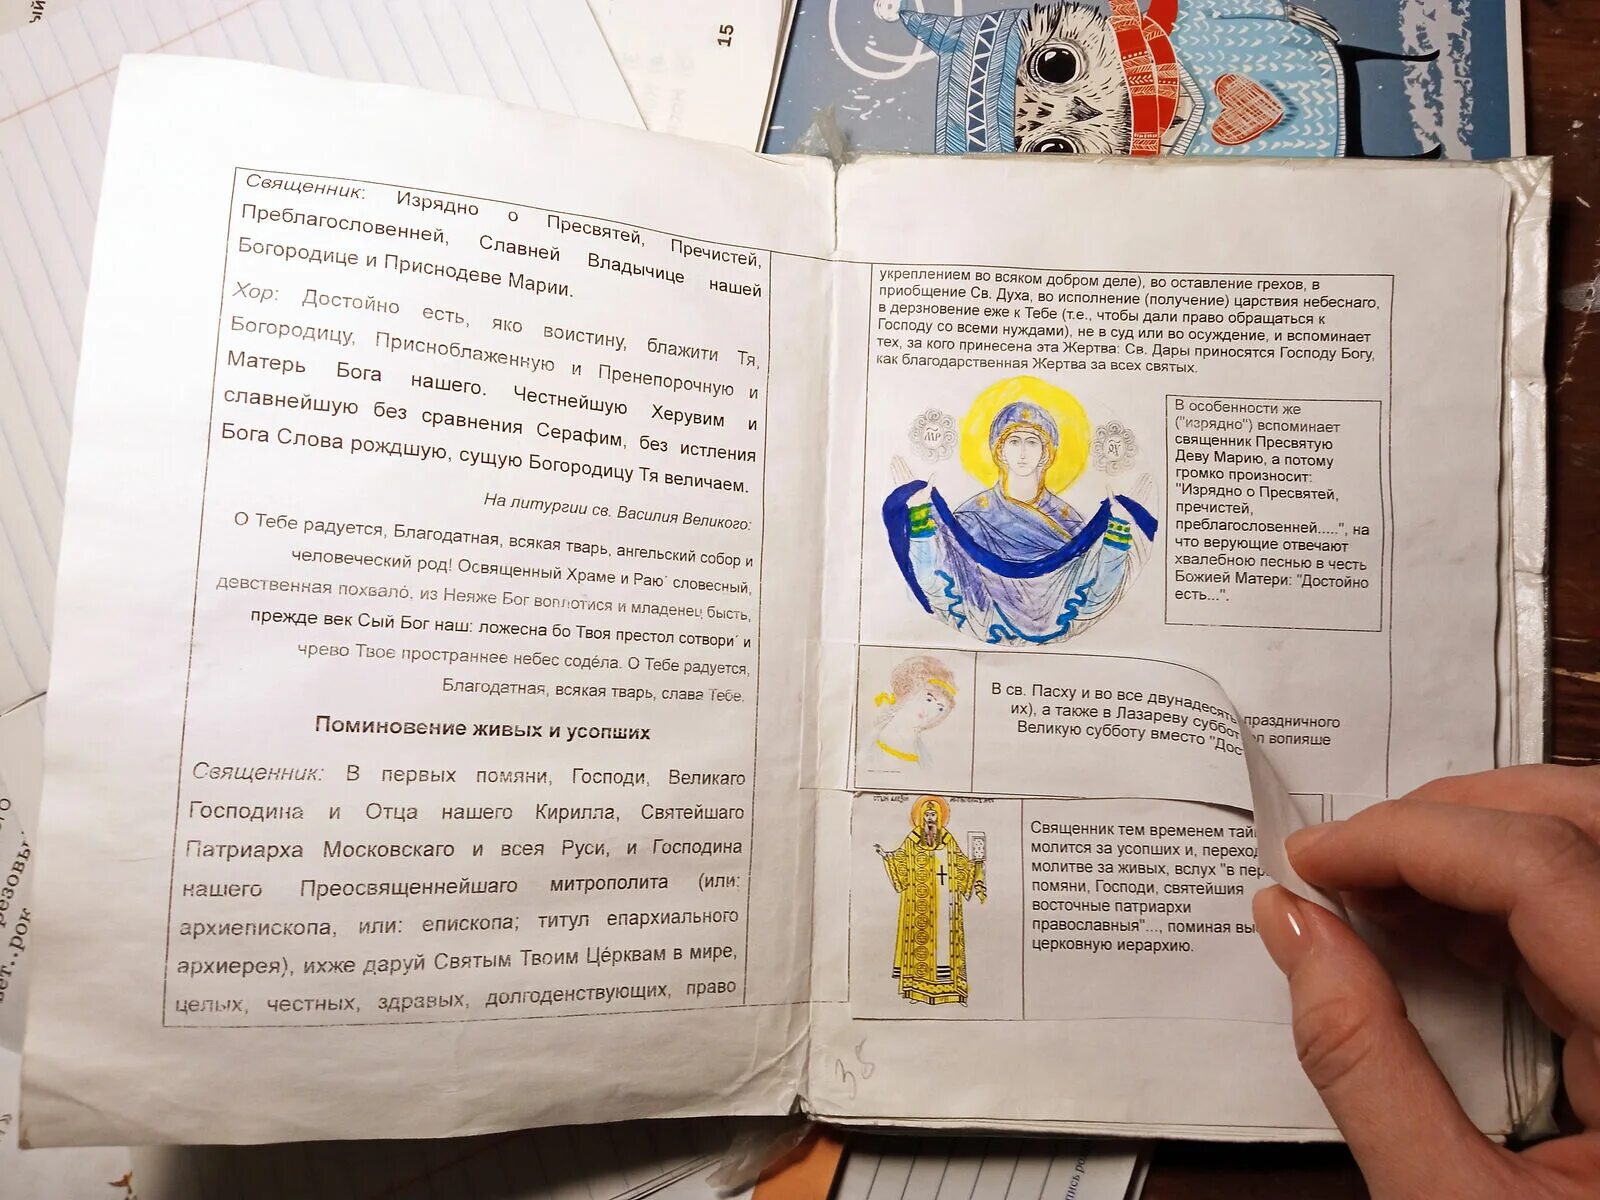 15
Священник: Изрядно о Пресвятей, Пречистей,
Преблагословенней, Славней Владычице нашей
Богородице и Приснодеве Марии.
Хор: Достойно есть, яко воистину, блажити Тя,
Богородицу, Присноблаженную и Пренепорочную и
Матерь Бога нашего. Честнейшую Херувим и
славнейшую без сравнения Серафим, без истления
Бога Слова рождшую, сущую Богородицу Тя величаем.
На литургии св. Василия Великого:
О Тебе радуется, Благодатная, всякая тварь, ангельский собор и
человеческий род! Освященный Храме и Раю´ словесный,
девственная похвало́, из Неяже Бог воплотися и младенец бысть,
прежде век Сый Бог наш: ложесна бо Твоя престол сотвори´ и
чрево Твое пространнее небес соде́ла. О Тебе радуется,
Благодатная, всякая тварь, слава Тебе.
Поминовение живых и усопших
Священник: В первых помяни, Господи, Великаго
Господина и Отца нашего Кирилла, Святейшаго
Патриарха Московскаго и всея Руси, и Господина
нашего Преосвященнейшаго митрополита (или:
архиепископа, или: епископа; титул епархиального
архиерея), ихже даруй Святым Твоим Це́рквам в мире,
целых, честных, здравых, долгоденствующих, право
укреплением во всяком добром деле), во оставление грехов, в
приобщение Св. Духа, во исполнение (получение) царствия небеснаго,
в дерзновение еже к Тебе (т.е., чтобы дали право обращаться к
Господу со всеми нуждами), не в суд или во осуждение, и вспоминает
тех, за кого принесена эта Жертва: Св. Дары приносятся Господу Богу,
как благодарственная Жертва за всех святых.
В особенности же
("изрядно") вспоминает
священник Пресвятую
Деву Марию, а потому
громко произносит:
"Изрядно о Пресвятей,
пречистей,
преблагословенней.....", на
что верующие отвечают
хвалебною песнью в честь
Божией Матери: "Достойно
есть...".
В св. Пасху и во все двунадесять праздничного
их), а также в Лазареву суббот вопияше
Великую субботу вместо "Дос
Священник тем временем тай
молится за усопших и, переход
молитве за живых, вслух "в пер
помяни, Господи, святейшия
восточные патриархи
православныя"..., поминая вы
церковную иерархию.
38